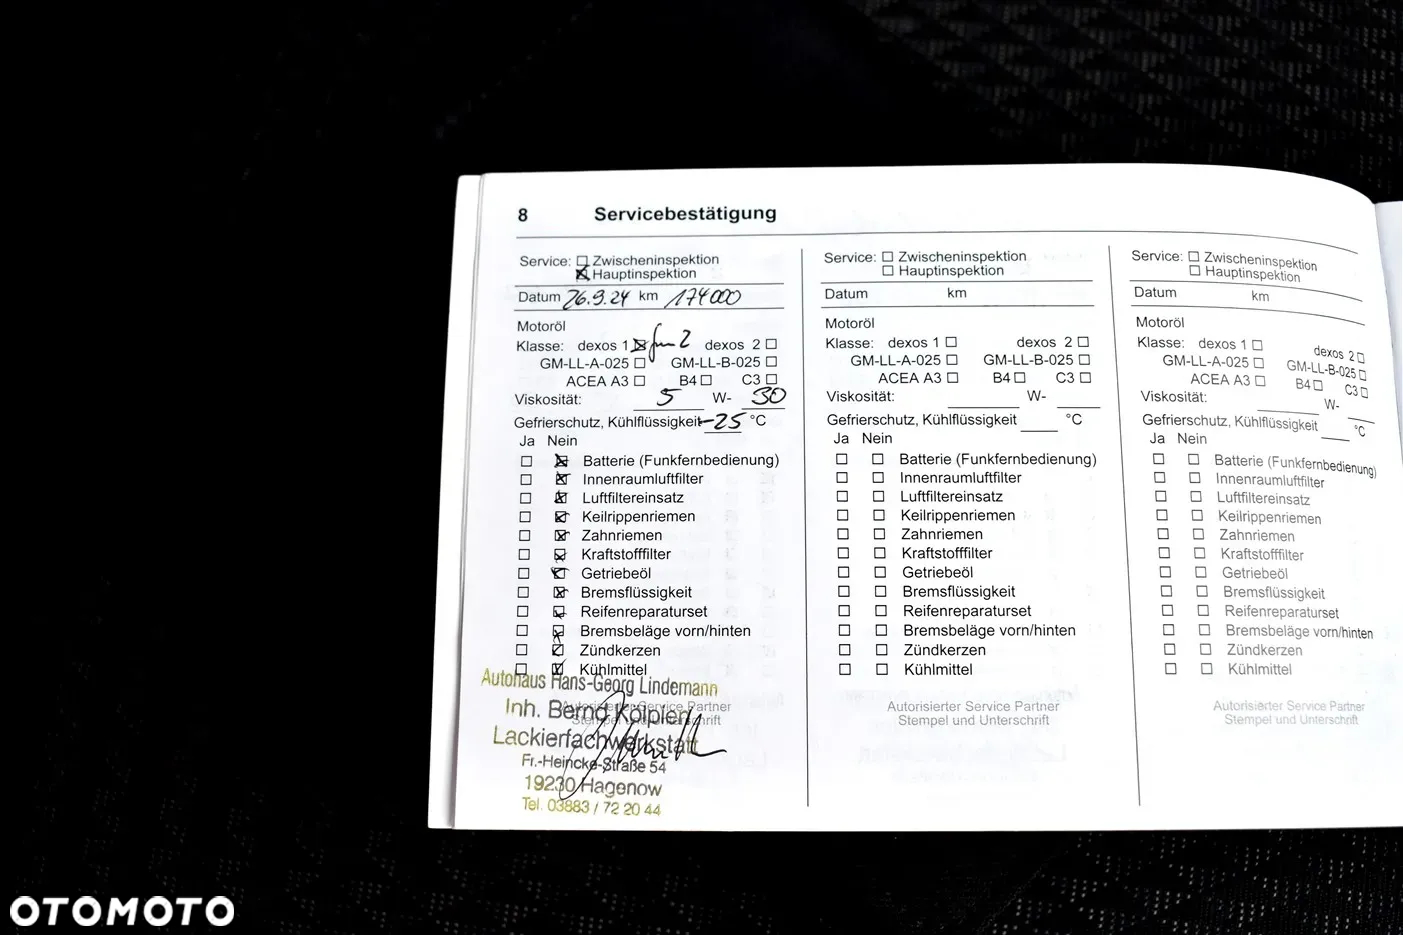 8 Servicebestätigung
Service: Zwischeninspektion
Hauptinspektion
Datum 26.9.24 km 174000
Motoröl
Klasse: dexos 1 Gen 2 dexos 2
GM-LL-A-025 GM-LL-B-025
ACEA A3 B4 C3
Viskosität: 5 W- 30
Gefrierschutz, Kühlflüssigkeit -25 °C
Ja Nein
Batterie (Funkfernbedienung)
Innenraumluftfilter
Luftfiltereinsatz
Keilrippenriemen
Zahnriemen
Kraftstofffilter
Getriebeöl
Bremsflüssigkeit
Reifenreparaturset
Bremsbeläge vorn/hinten
Zündkerzen
Kühlmittel
Autohaus Hans-Georg Lindemann
Autorisierter Service Partner
Inh. Bernd Kolpien
Stempel und Unterschrift
Lackierfachwerkstatt
Fr.-Heincke-Straße 54
19230 Hagenow
Tel. 03883 / 72 20 44
Service: Zwischeninspektion
Hauptinspektion
Datum km
Motoröl
Klasse: dexos 1 dexos 2
GM-LL-A-025 GM-LL-B-025
ACEA A3 B4 C3
Viskosität: W-
Gefrierschutz, Kühlflüssigkeit °C
Ja Nein
Batterie (Funkfernbedienung)
Innenraumluftfilter
Luftfiltereinsatz
Keilrippenriemen
Zahnriemen
Kraftstofffilter
Getriebeöl
Bremsflüssigkeit
Reifenreparaturset
Bremsbeläge vorn/hinten
Zündkerzen
Kühlmittel
Autorisierter Service Partner
Stempel und Unterschrift
Service: Zwischeninspektion
Hauptinspektion
Datum km
Motoröl
Klasse: dexos 1 dexos 2
GM-LL-A-025 GM-LL-B-025
ACEA A3 B4 C3
Viskosität: W-
Gefrierschutz, Kühlflüssigkeit °C
Ja Nein
Batterie (Funkfernbedienung)
Innenraumluftfilter
Luftfiltereinsatz
Keilrippenriemen
Zahnriemen
Kraftstofffilter
Getriebeöl
Bremsflüssigkeit
Reifenreparaturset
Bremsbeläge vorn/hinten
Zündkerzen
Kühlmittel
Autorisierter Service Partner
Stempel und Unterschrift
OTOMOTO